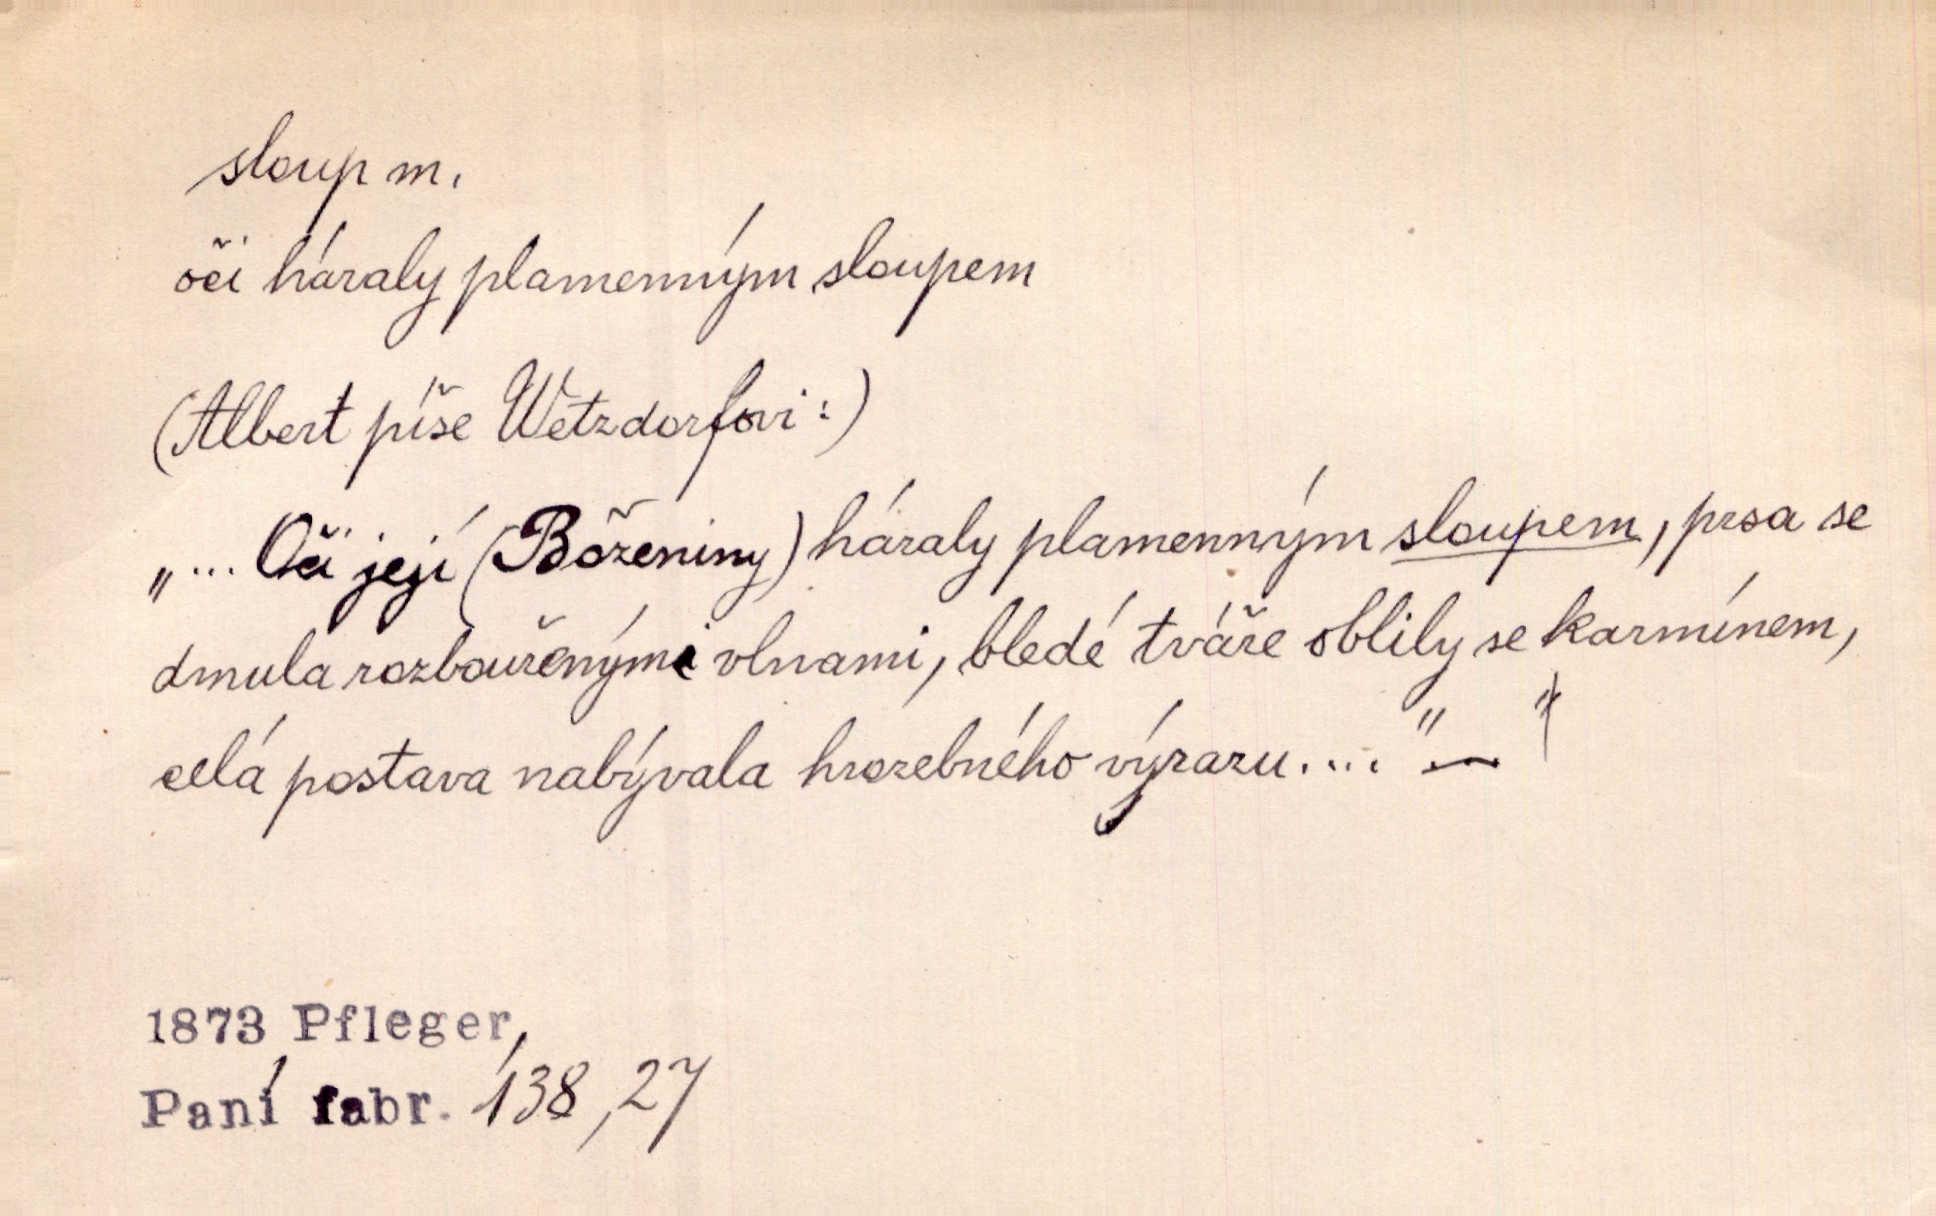 sloup m.
oči háraly plamenným sloupem
(Albert píše Wetzdorfovi:)
„... Oči její (Boženiny) háraly plamenným sloupem, prsa se
dmula rozbouřenými vlnami, bledé tváře oblily se karmínem,
celá postava nabývala hrozebného výrazu...." — "
1873 Pfleger,
Paní fabr. 138,27